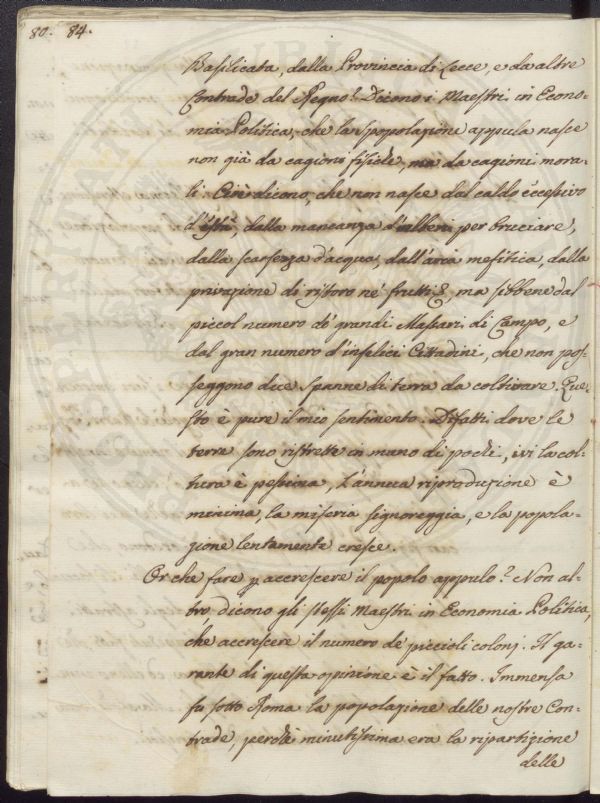 80. 84.
Basilicata, dalla Provincia di Lecce, e da altre
Contrade del Regno? Dicono i Maestri in Econo-
mia Politica, che la spopolazione appula nasce
non già da cagioni fisiche, ma da cagioni mora-
li. Cioè dicono, che non nasce dal caldo eccessivo
d'està, dalla mancanza d'alberi per bruciare,
dalla scarsezza d'acqua, dall'area mefitica, dalla
privazione di ristoro né frutti &, ma sibbene dal
piccol numero de' grandi Massari di Campo, e
dal gran numero d'infelici Cittadini, che non pos-
seggono due spanne di terra da coltivare. Que-
sto è pure il mio sentimento. Difatti dove le
terre sono ristrette in mano di pochi, ivi la col-
tura è pessima, l'annua riproduzione è
minima, la miseria signoreggia, e la popola-
zione lentamente cresce.
Or che fare p accrescere il popolo appulo? Non al-
tro, dicono gli stessi Maestri in Economia Politica,
che accrescere il numero de' piccioli coloni. Il ga-
rante di questa opinione è il fatto. Immensa
fu sotto Roma la popolazione delle nostre Con-
trade, perchè minutissima era la ripartizione
delle